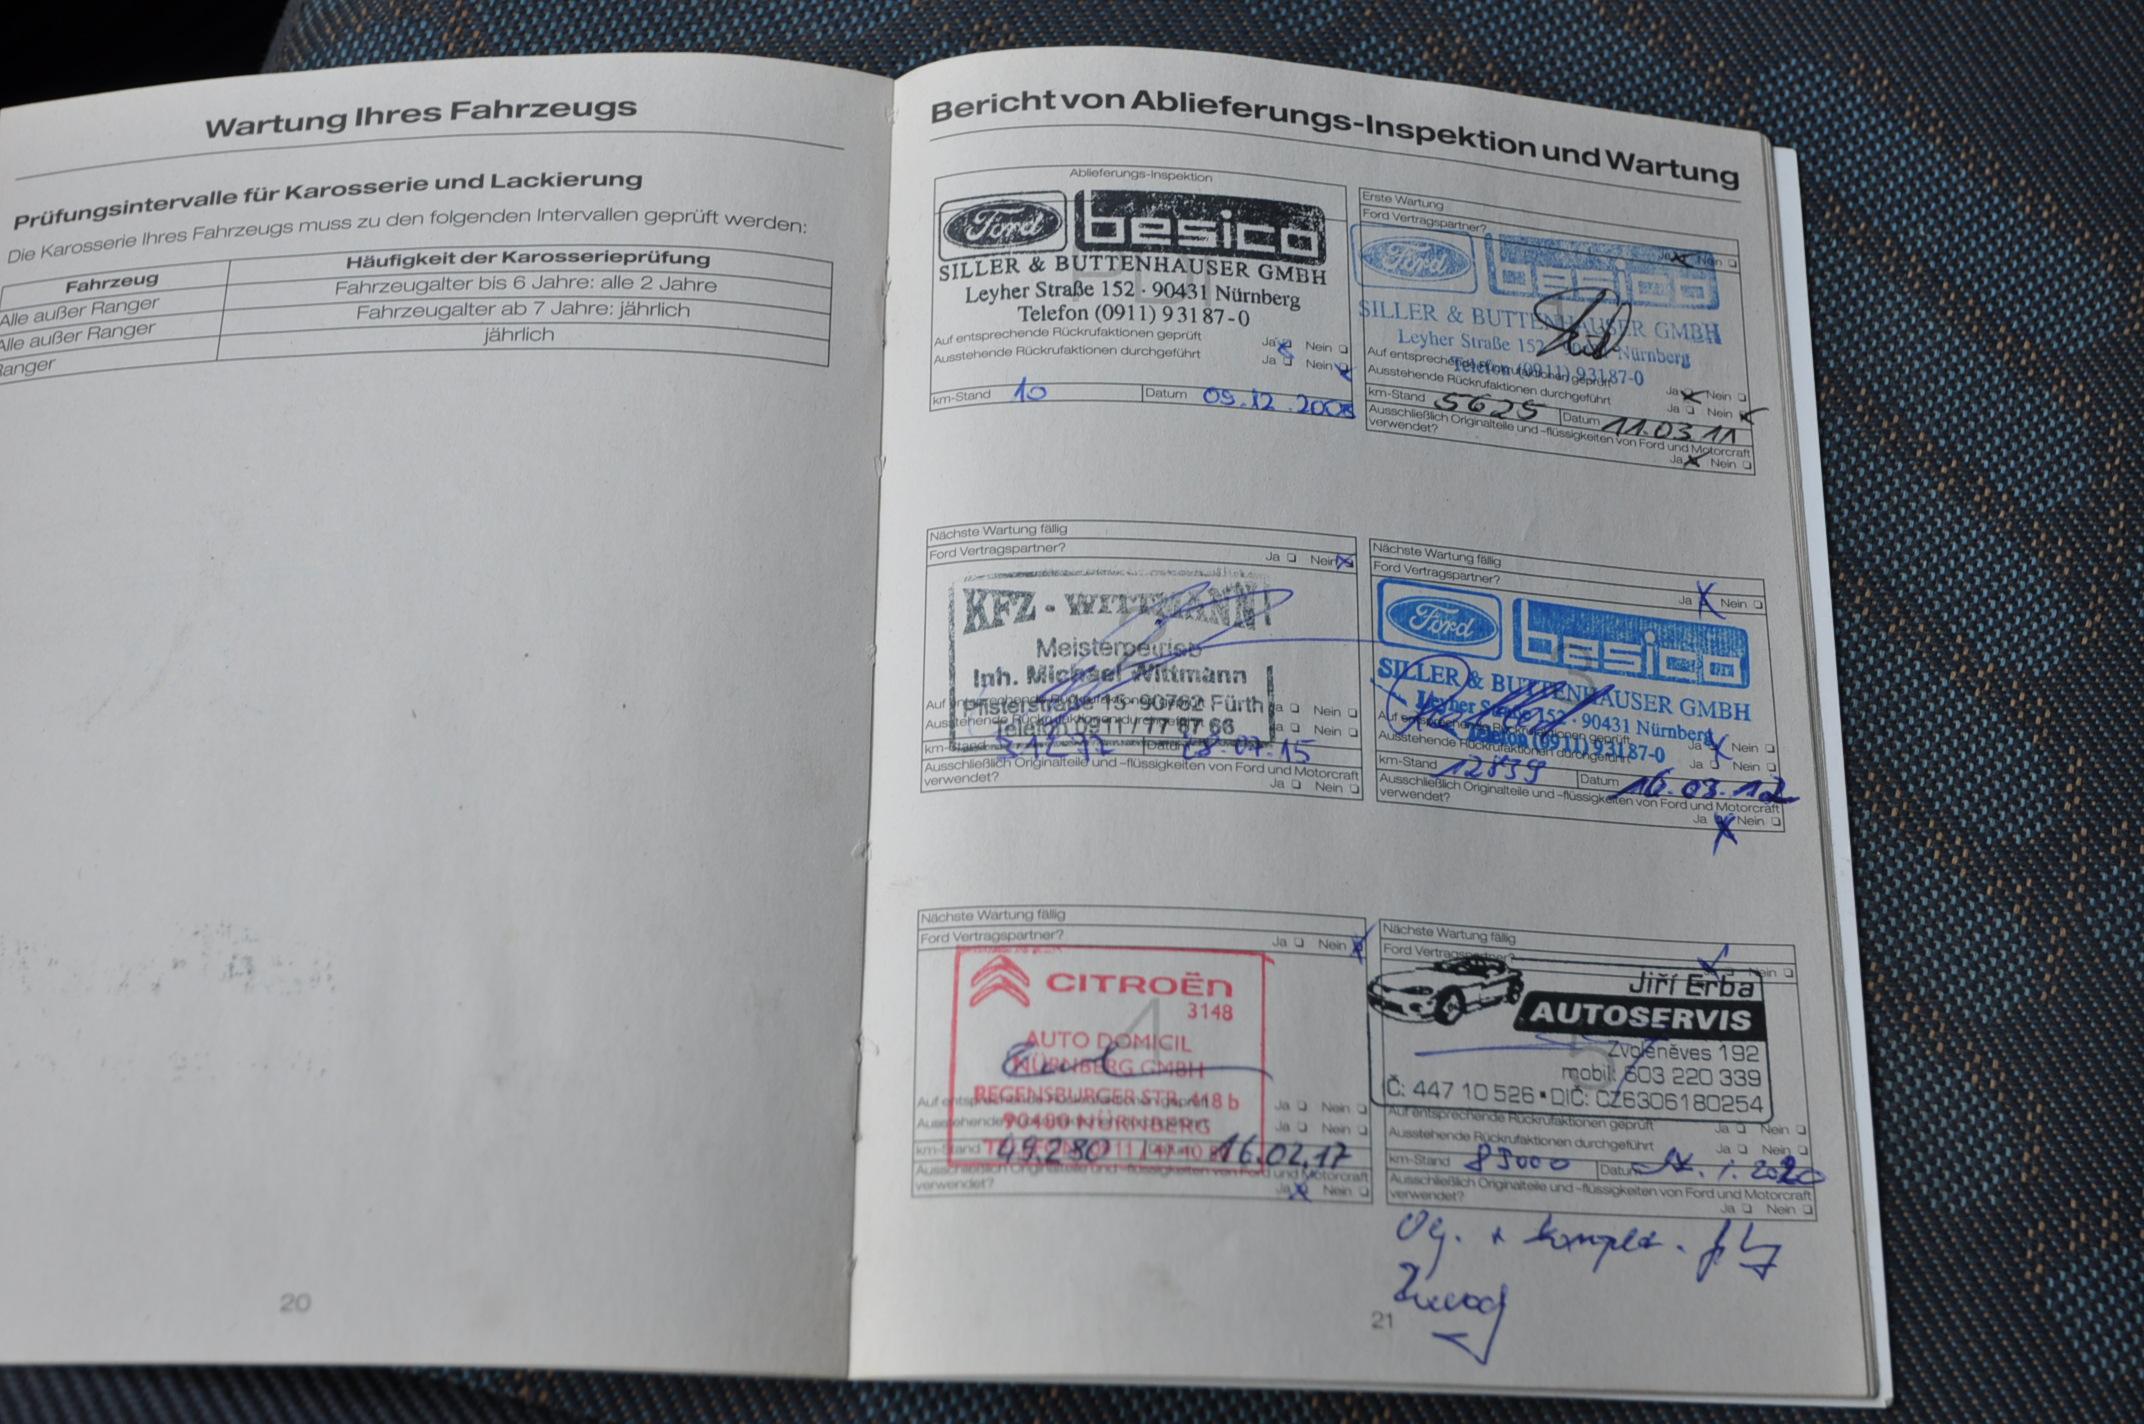 Wartung Ihres Fahrzeugs
Prüfungsintervalle für Karosserie und Lackierung
Die Karosserie Ihres Fahrzeugs muss zu den folgenden Intervallen geprüft werden:
Fahrzeug Häufigkeit der Karosserieprüfung
Alle außer Ranger Fahrzeugalter bis 6 Jahre: alle 2 Jahre
Alle außer Ranger Fahrzeugalter ab 7 Jahre: jährlich
Ranger jährlich
20
Bericht von Ablieferungs-Inspektion und Wartung
Ablieferungs-Inspektion
Ford besico
SILLER & BUTTENHAUSER GMBH
Leyher Straße 152 · 90431 Nürnberg
Telefon (0911) 93187-0
Auf entsprechende Rückrufaktionen geprüft Ja Nein
Ausstehende Rückrufaktionen durchgeführt Ja Nein
km-Stand 10 Datum 09.12.
Erste Wartung
Ford Vertragspartner?
Ja Nein
Ford besico
SILLER & BUTTENHAUSER GMBH
Leyher Straße 152 · 90431 Nürnberg
Telefon (0911) 93187-0
Auf entsprechende Rückrufaktionen geprüft Ja Nein
Ausstehende Rückrufaktionen durchgeführt Ja Nein
km-Stand 5625 Datum 11.03.11
Ausschließlich Originalteile und -flüssigkeiten von Ford und Motorcraft
verwendet? Ja Nein
Nächste Wartung fällig
Ford Vertragspartner? Ja Nein
KFZ - WITTMANN
Meisterbetrieb
Inh. Michael Wittmann
Pfisterstraße 15 · 90762 Fürth
Telefon 0911 / 77 87 66
Auf entsprechende Rückrufaktionen geprüft Ja Nein
Ausstehende Rückrufaktionen durchgeführt Ja Nein
km-Stand Datum .07.15
Ausschließlich Originalteile und -flüssigkeiten von Ford und Motorcraft
verwendet? Ja Nein
Nächste Wartung fällig
Ford Vertragspartner?
Ja Nein
Ford besico
3
SILLER & BUTTENHAUSER GMBH
Leyher Straße 152 · 90431 Nürnberg
Telefon (0911) 93187-0
Auf entsprechende Rückrufaktionen geprüft Ja Nein
Ausstehende Rückrufaktionen durchgeführt Ja Nein
km-Stand 12839 Datum 16.03.12
Ausschließlich Originalteile und -flüssigkeiten von Ford und Motorcraft
verwendet? Ja Nein
Nächste Wartung fällig
Ford Vertragspartner? Ja Nein
CITROËN
3148
4
AUTO DOMICIL
NÜRNBERG GMBH
REGENSBURGER STR. 418 b
90480 NÜRNBERG
Auf entsprechende Rückrufaktionen geprüft Ja Nein
Ausstehende Rückrufaktionen durchgeführt Ja Nein
km-Stand 49.280 16.02.17
Ausschließlich Originalteile und -flüssigkeiten von Ford und Motorcraft
verwendet? Ja Nein
Nächste Wartung fällig
Ford Vertragspartner? Ja Nein
Jiří Erba
AUTOSERVIS
5
Zvoleněves 192
mobil: 603 220 339
IČ: 447 10 526 ▪ DIČ: CZ6306180254
Auf entsprechende Rückrufaktionen geprüft Ja Nein
Ausstehende Rückrufaktionen durchgeführt Ja Nein
km-Stand Datum 2020
Ausschließlich Originalteile und -flüssigkeiten von Ford und Motorcraft
verwendet? Ja Nein
21